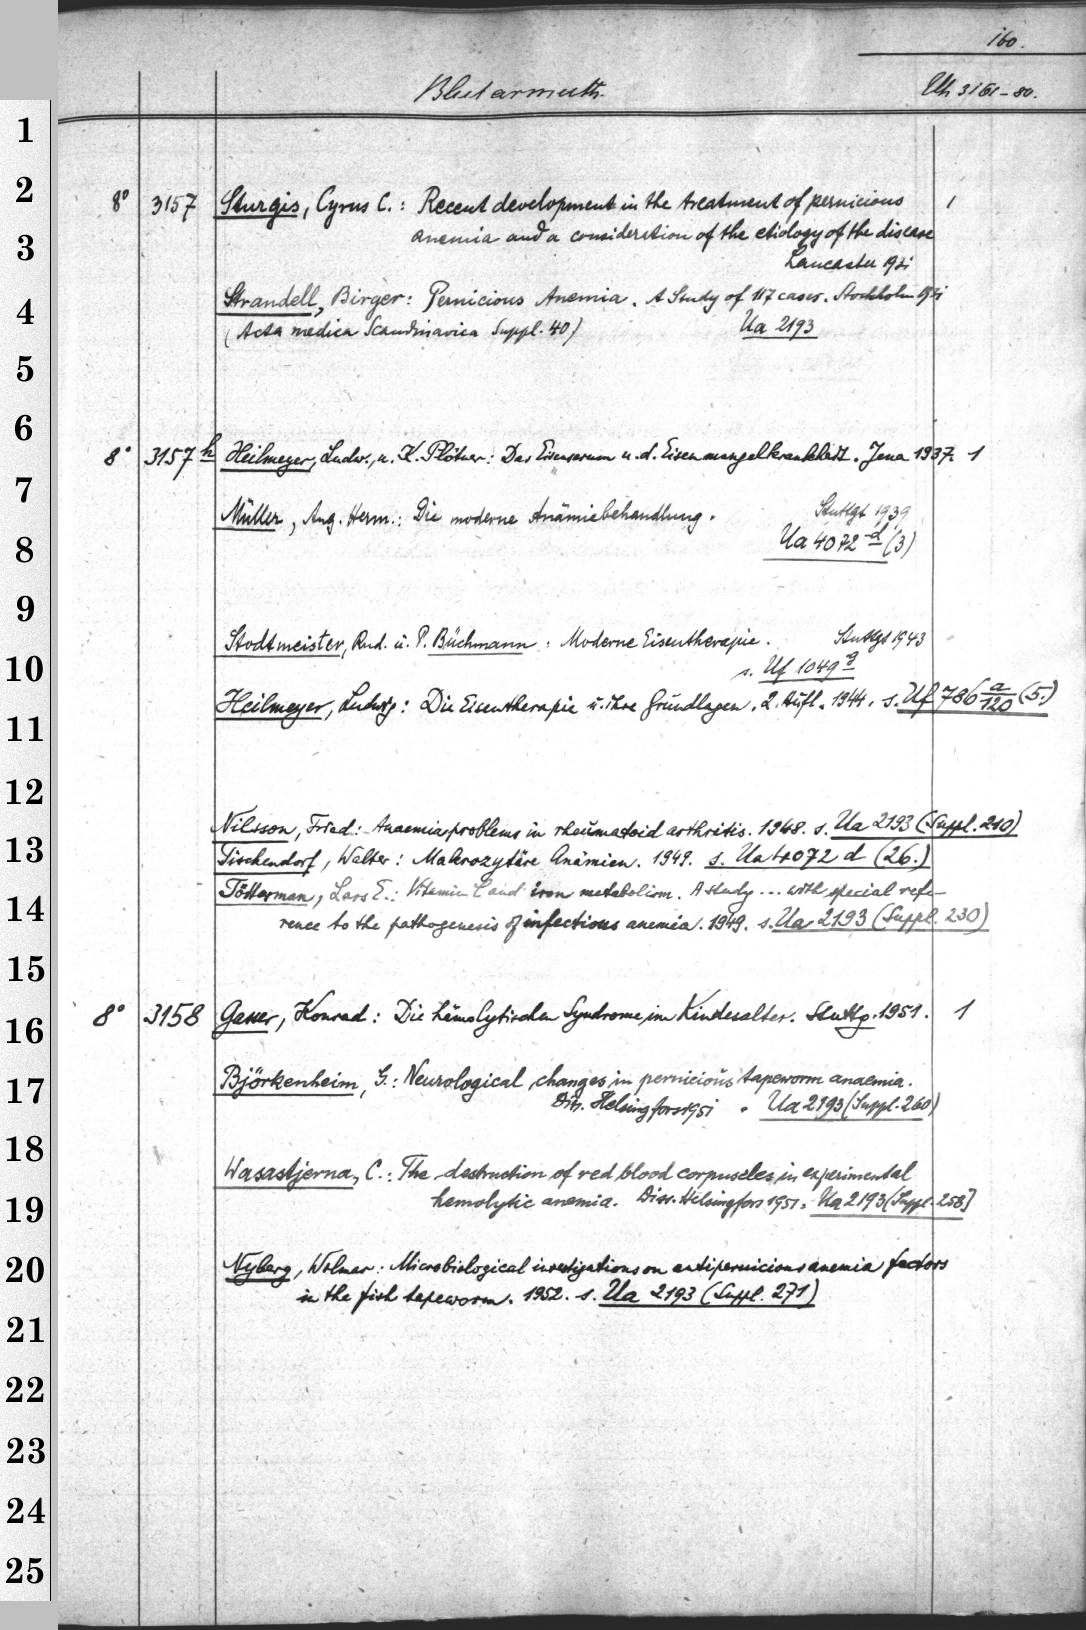 160.
Blutarmuth.
Uh 3161-80.
1
2
8° 3157 Sturgis, Cyrus C.: Recent development in the treatment of pernicious 1
3
anemia and a consideration of the etiology of the disease
Lancaster 1931
4
Strandell, Birger: Pernicious Anemia. A Study of 117 cases. Stockholm 1931
(Acta medica Scandinavica Suppl. 40) Ua 2193
5
6
8° 3157 h Heilmeyer, Ludw., u. K. Plötner: Das Eisenserum u. d. Eisenmangelkrankheit. Jena 1937. 1
7
Müller, Aug. Herm.: Die moderne Anämiebehandlung. Stuttgt 1939
8
Ua 4072 d (3)
9
Stodtmeister, Rud. u. P. Büchmann: Moderne Eisentherapie. Stuttgt 1943
10
s. Uf 1049 g
Heilmeyer, Ludwig: Die Eisentherapie u. ihre Grundlagen. 2. Aufl. 1944. s. Uf 786 a/120 (5.)
11
12
Nilsson, Fried: Anaemia problems in rheumatoid arthritis. 1948. s. Ua 2193 (Suppl. 210)
13
Tischendorf, Walter: Makrozytäre Anämien. 1949. s. Ua 4072 d (26.)
Tötterman, Lars E.: Vitamin C and iron metabolism. A study ... with special refe-
14
rence to the pathogenesis of infectious anemia. 1949. s. Ua 2193 (Suppl. 230)
15
8° 3158 Gasser, Konrad: Die hämolytischen Syndrome im Kindesalter. Stuttg. 1951. 1
16
17
Björkenheim, G.: Neurological changes in pernicious tapeworm anaemia.
Diss. Helsingfors 1951. Ua 2193 (Suppl. 260)
18
Wasastjerna, C.: The destruction of red blood corpuscles in experimental
19
hemolytic anemia. Diss. Helsingfors 1951. Ua 2193 (Suppl. 258)
20
Nyberg, Wolmar: Microbiological investigations on antipernicious anemia factors
in the fish tapeworm. 1952. s. Ua 2193 (Suppl. 271)
21
22
23
24
25